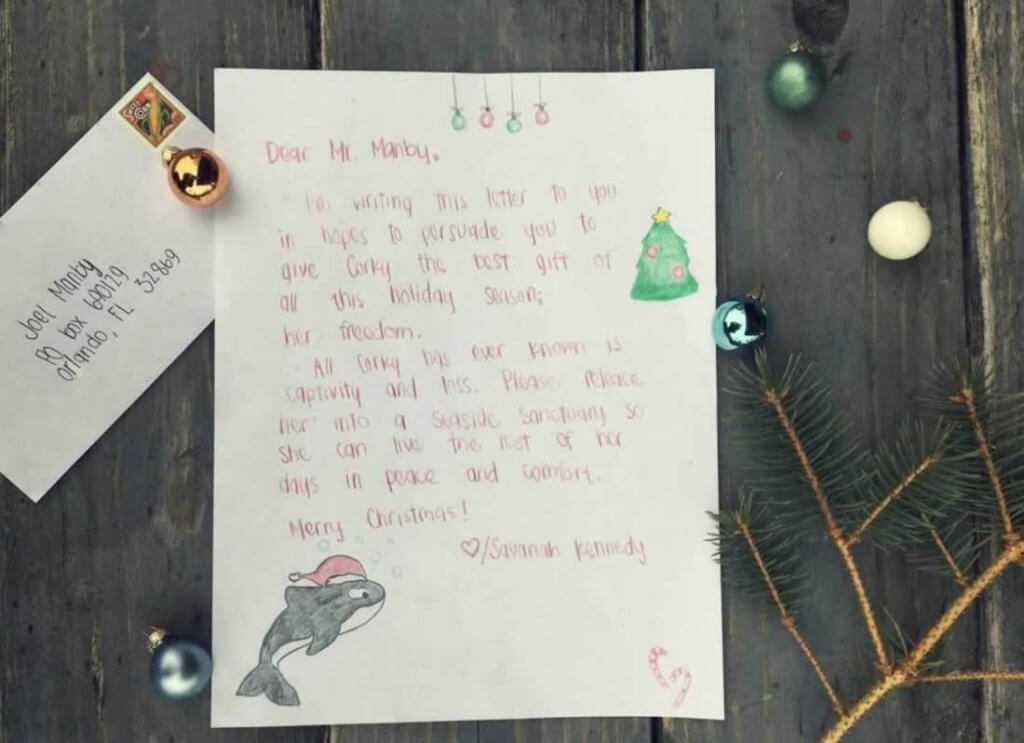 Sweet
Corn
Joel Manby
PO box 690129
Orlando, FL 32869
Dear Mr. Manby,
I'm writing this letter to you
in hopes to persuade you to
give Corky the best gift of
all this holiday season;
her freedom.
All Corky has ever known is
captivity and loss. Please release
her into a seaside sanctuary so
she can live the rest of her
days in peace and comfort.
Merry Christmas!
♡/Savanah Kennedy